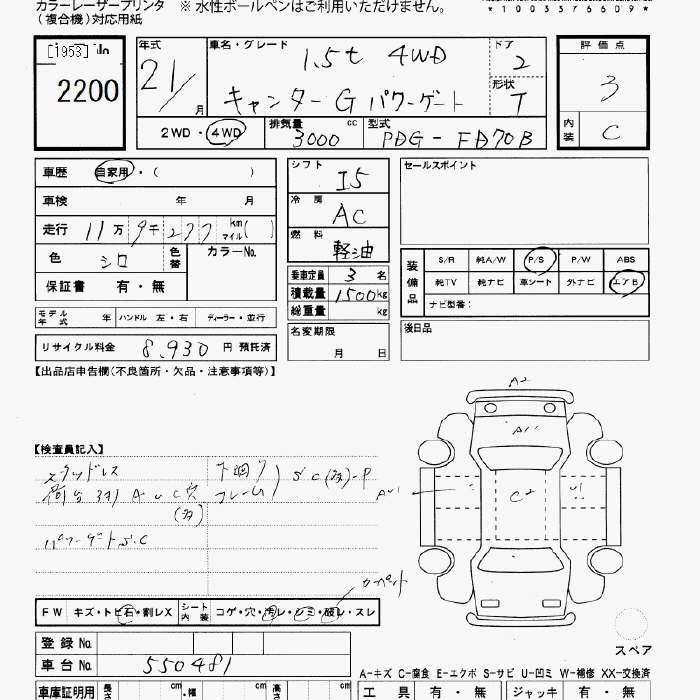 カラーレーザープリンタ ※ 水性ボールペンはご利用いただけません。
(複合機)対応用紙
* 1 0 0 3 5 7 6 6 0 9 *
[1953]
2200
年式 21/ 月
車名・グレード 1.5t 4WD
キャンター G パワーゲート
ドア 2
形状 T
評価点 3
内装 C
2WD・4WD
排気量 3000 cc
型式 PDG-FD70B
車歴 自家用・( )
車検 年 月
走行 11万 9千 277 km マイル( )
色 シロ 色番 カラーNo.
保証書 有・無
シフト I5
冷房 AC
燃料 軽油
乗車定員 3 名
積載量 1500kg
総重量 kg
セールスポイント
装備品 S/R 純A/W P/S P/W ABS
純TV 純ナビ 車シート 外ナビ エアB
ナビ型番:
モデル年式 年 ハンドル 左・右 ディーラー・並行
名変期限 月 日
後日品
リサイクル料金 8,930 円 預託済
【出品店申告欄(不良箇所・欠品・注意事項等)】
A2
A11
【検査員記入】
スタッドレス
下廻り
フレーム
C2
パワーゲート S.C
カーペント
FW キズ・トビ石・割レX シート内装 コゲ・穴・汚レ・シミ・破レ・スレ
登録 No.
車台 No. 550481
スペア
A-キズ C-腐食 E-エクボ S-サビ U-凹ミ W-補修 XX-交換済
車庫証明用 長さ cm ・幅 cm 高さ cm
工具 有・無 ジャッキ 有・無